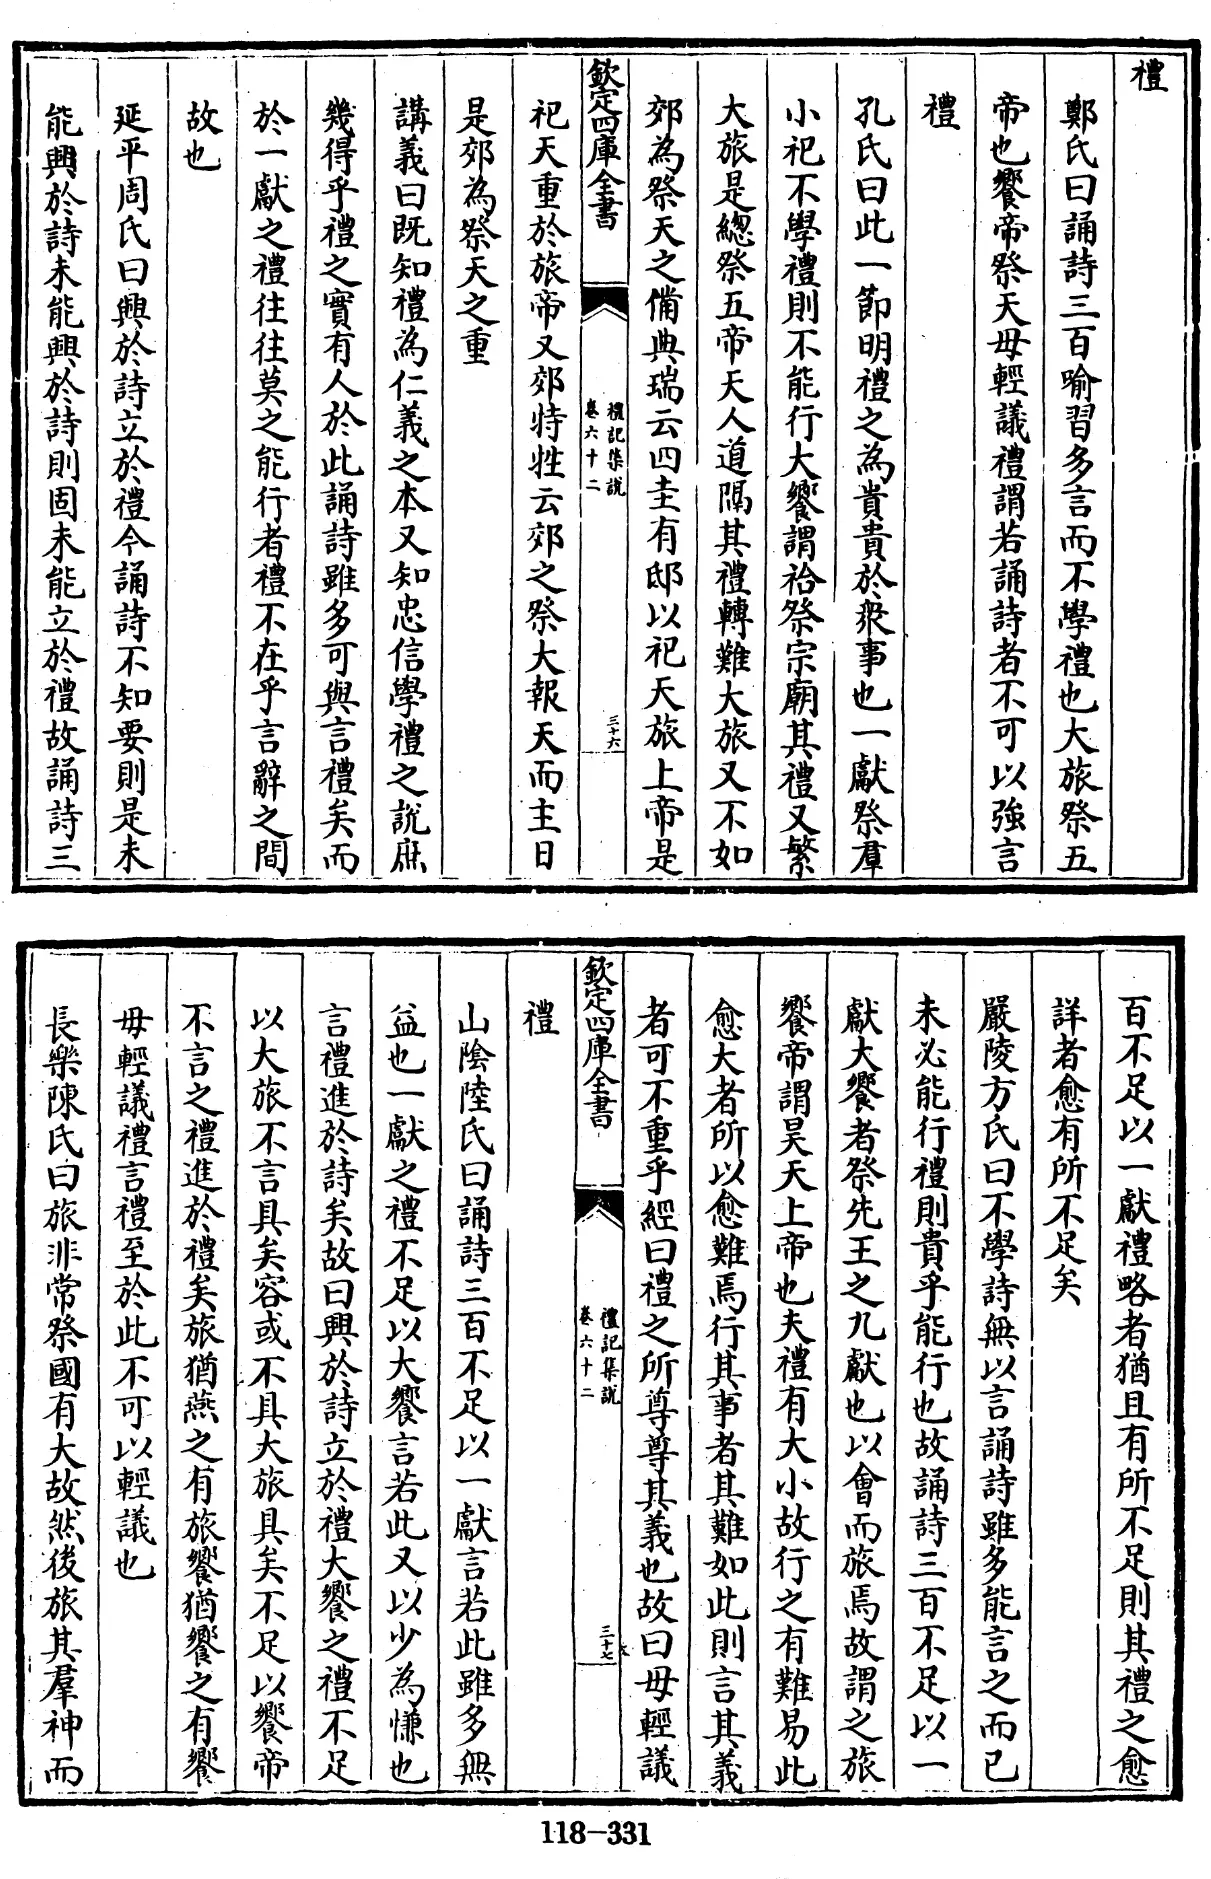 禮
鄭氏曰誦詩三百喻習多言而不學禮也大旅祭五
帝也饗帝祭天毋輕議禮謂若誦詩者不可以強言
禮
孔氏曰此一節明禮之為貴貴於衆事也一獻祭羣
小祀不學禮則不能行大饗謂祫祭宗廟其禮又繁
大旅是總祭五帝天人道隔其禮轉難大旅又不如
郊為祭天之備典瑞云四圭有邸以祀天旅上帝是
欽定四庫全書
禮記集說
卷六十二
三十六
祀天重於旅帝又郊特牲云郊之祭大報天而主日
是郊為祭天之重
講義曰既知禮為仁義之本又知忠信學禮之說庶
幾得乎禮之實有人於此誦詩雖多可與言禮矣而
於一獻之禮往往莫之能行者禮不在乎言辭之間
故也
延平周氏曰興於詩立於禮今誦詩不知要則是未
能興於詩未能興於詩則固未能立於禮故誦詩三
百不足以一獻禮略者猶且有所不足則其禮之愈
詳者愈有所不足矣
嚴陵方氏曰不學詩無以言誦詩雖多能言之而已
未必能行禮則貴乎能行也故誦詩三百不足以一
獻大饗者祭先王之九獻也以會而旅焉故謂之旅
饗帝謂昊天上帝也夫禮有大小故行之有難易此
愈大者所以愈難焉行其事者其難如此則言其義
者可不重乎經曰禮之所尊尊其義也故曰毋輕議
欽定四庫全書
禮記集說
卷六十二
三十七
禮
山陰陸氏曰誦詩三百不足以一獻言若此雖多無
益也一獻之禮不足以大饗言若此又以少為慊也
言禮進於詩矣故曰興於詩立於禮大饗之禮不足
以大旅不言具矣容或不具大旅具矣不足以饗帝
不言之禮進於禮矣旅猶燕之有旅饗猶饗之有饗
毋輕議禮言禮至於此不可以輕議也
長樂陳氏曰旅非常祭國有大故然後旅其羣神而
118-331